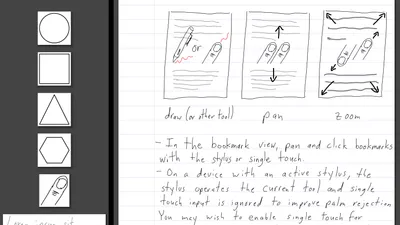 or
draw (or other tool)
pan
zoom
- In the bookmark view, pan and click bookmarks
with the stylus or single touch.
- On a device with an active stylus, the
stylus operates the current tool and single
touch input is ignored to improve palm rejection.
You may wish to enable single touch for
Lorem ipsum